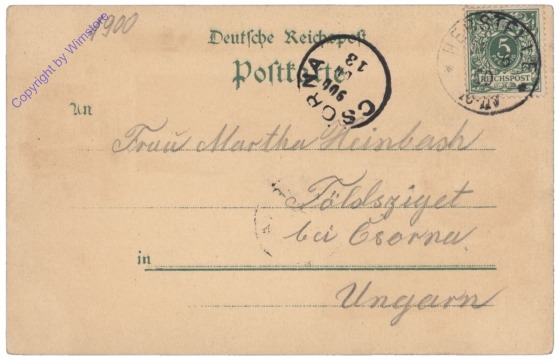 Copyright by Wimstore
1900
Deutsche Reichspost
Postkarte
CSORNA
900
13
5
REICHSPOST
An
Frau Martha Heinbach
Földsziget
bei Csorna
in
Ungarn